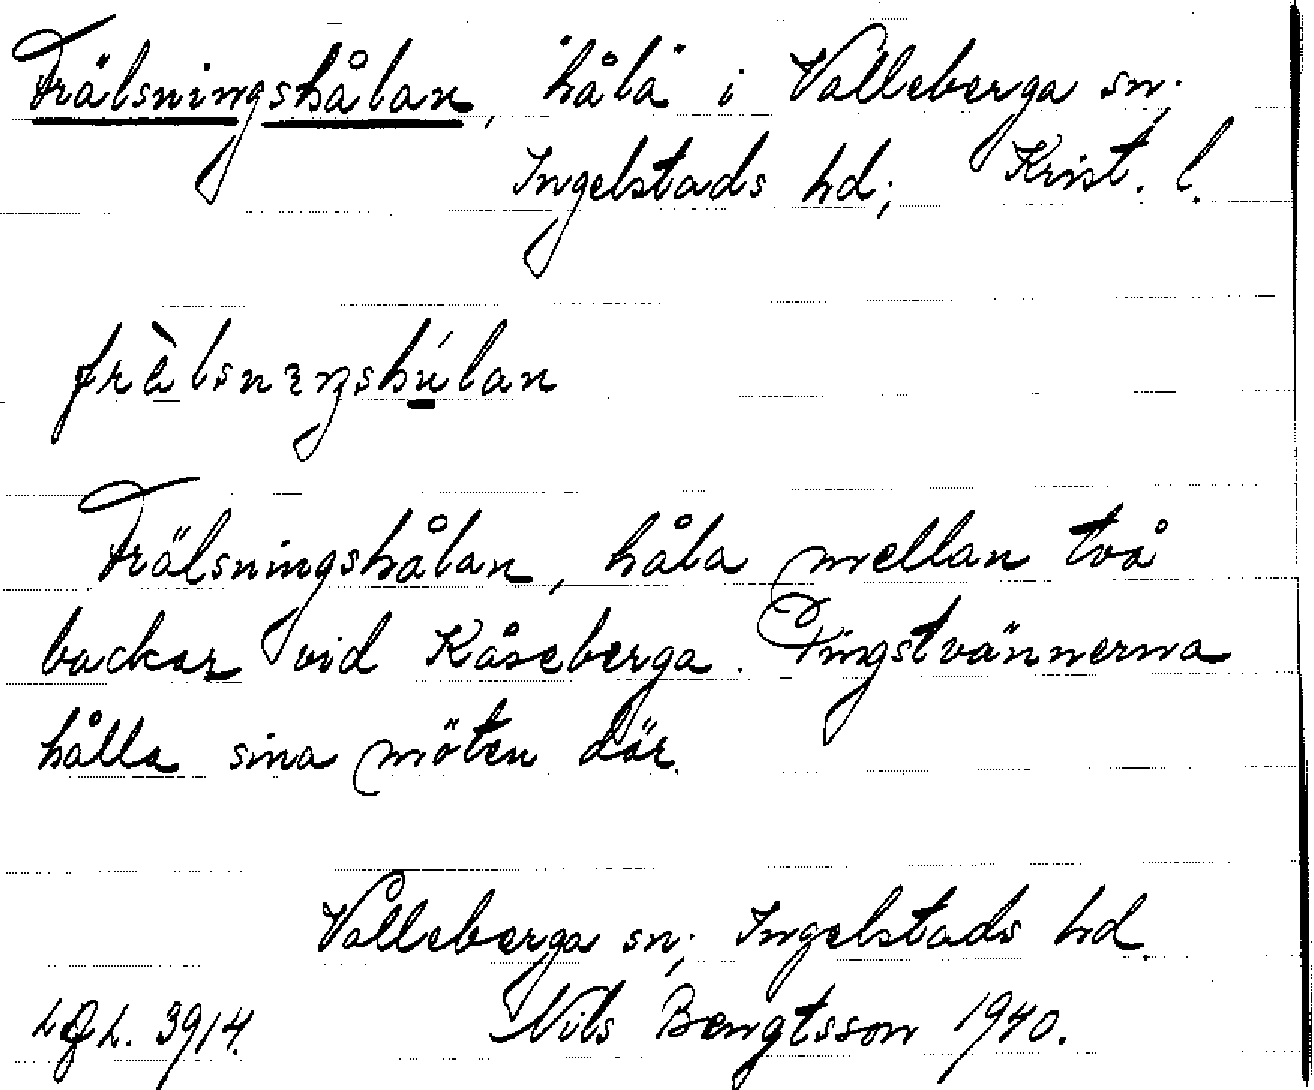 Frälsningshålan, "håla" i Valleberga sn;
Ingelstads hd; Krist. l.
frä̀lsnɪŋshúlan
Frälsningshålan, håla mellan två
backar vid Kåseberga. Pingstvännerna
hålla sina möten där.
Valleberga sn; Ingelstads hd.
3914. Nils Bengtsson 1940.